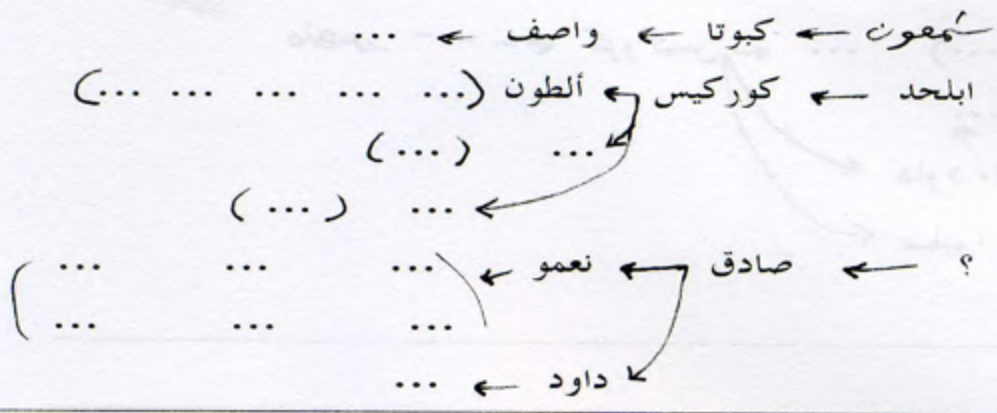 شمعون ← كبوتا ← واصف ← ...
ابلحد ← كوركيس ← ألطون (... ... ... ... ...)
... (...)
... (...)
؟ ← صادق ← نعمو ← (... ... ...
... ... ...)
داود ← ...